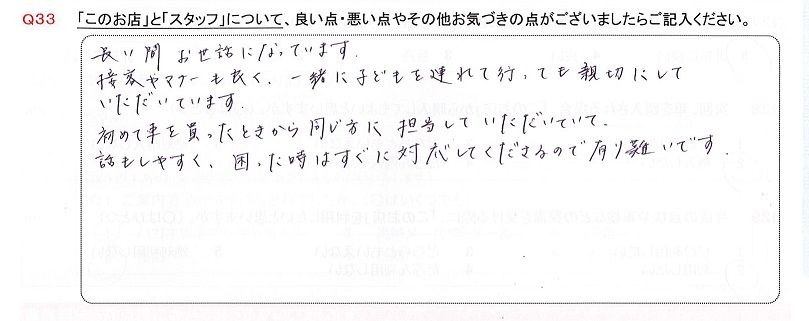 Q33 「このお店」と「スタッフ」について、良い点・悪い点やその他お気づきの点がございましたらご記入ください。
長い間 お世話になっています.
接客やマナーも良く、一緒に子どもを連れて行っても親切にして
いただいています.
初めて車を買ったときから同じ方に担当していただいていて.
話もしやすく、困った時はすぐに対応してくださるので有り難いです.